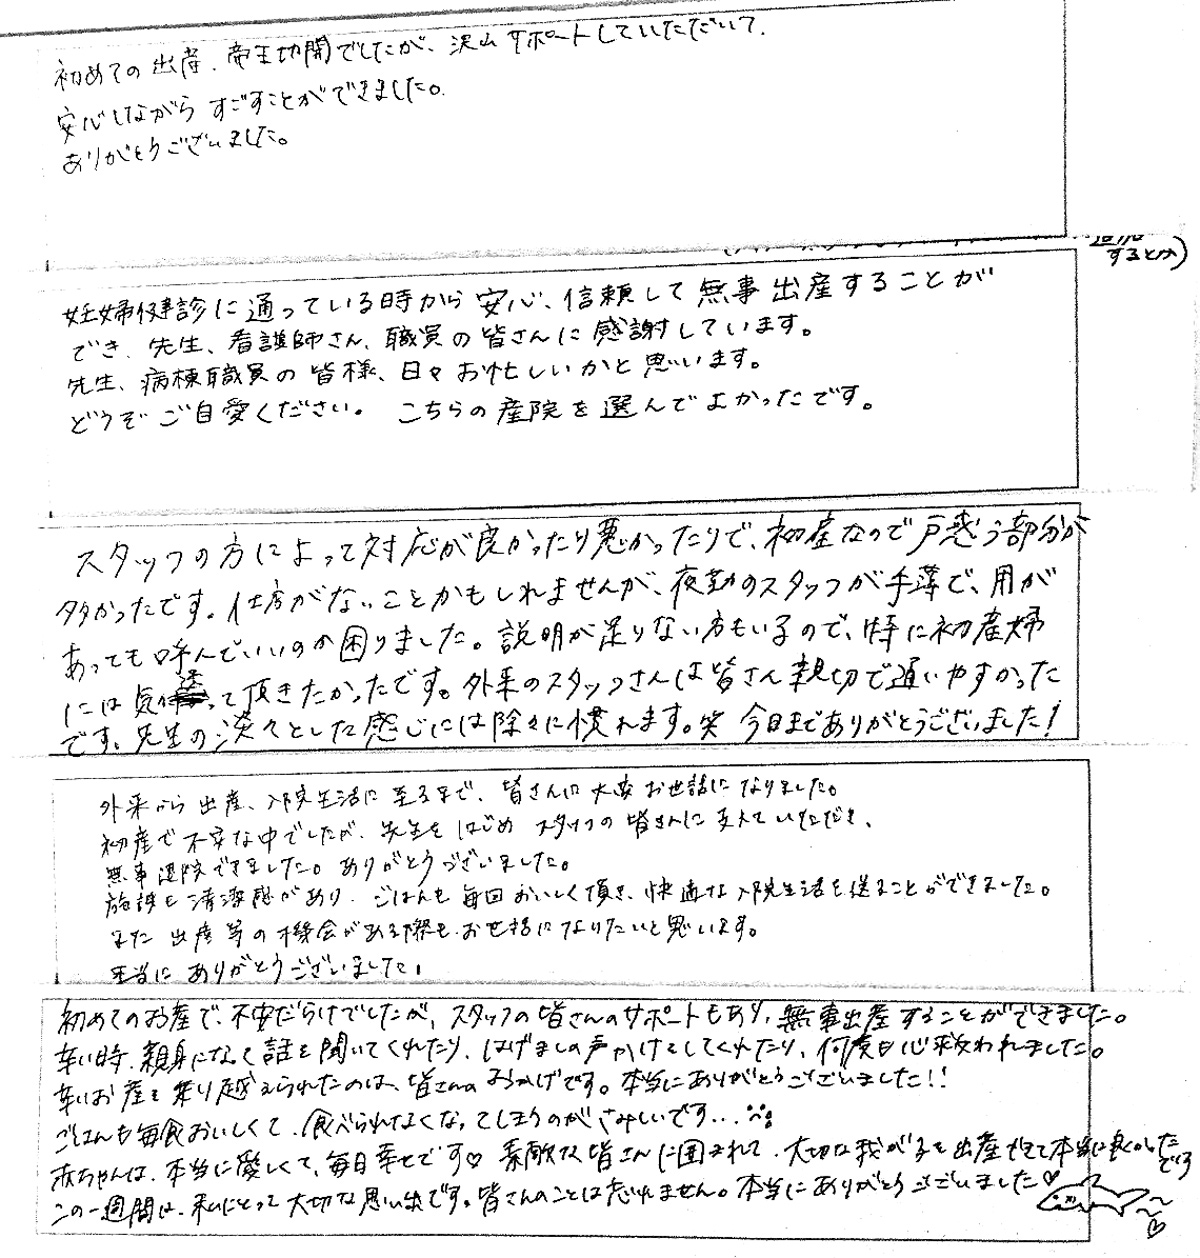 初めての出産、帝王切開でしたが、沢山サポートしていただいて、
安心しながらすごすことができました。
ありがとうございました。
するとか)
妊婦健診に通っている時から安心、信頼して無事出産することが
でき、先生、看護師さん、職員の皆さんに感謝しています。
先生、病棟職員の皆様、日々お忙しいかと思います。
どうぞご自愛ください。こちらの産院を選んでよかったです。
スタッフの方によって対応が良かったり悪かったりで、初産なので戸惑う部分が
多かったです。仕方がないことかもしれませんが、夜勤のスタッフが手薄で、用が
あっても呼んでいいのか困りました。説明が足りない方もいるので、特に初産婦
には気遣って頂きたかったです。外来のスタッフさんは皆さん親切で通いやすかった
です。先生の淡々とした感じには除々に慣れます。笑 今日までありがとうございました!
外来から出産、入院生活に至るまで、皆さんに大変お世話になりました。
初産で不安な中でしたが、先生をはじめスタッフの皆さんに支えていただき、
無事退院できました。ありがとうございました。
施設も清潔感があり、ごはんも毎回おいしく頂き、快適な入院生活を送ることができました。
また出産等の機会がある際も、お世話になりたいと思います。
本当にありがとうございました!
初めてのお産で、不安だらけでしたが、スタッフの皆さんのサポートもあり、無事出産することができました。
辛い時、親身になって話を聞いてくれたり、はげましの声かけをしてくれたり、何度も心救われました。
辛いお産を乗り越えられたのは、皆さんのおかげです。本当にありがとうございました!!
ごはんも毎食おいしくて、食べられなくなってしまうのがさみしいです...
赤ちゃんは、本当に愛しくて、毎日幸せです♡ 素敵な皆さんに囲まれて、大切な我が子を出産できて本当に良かったです
この一週間は、私にとって大切な思い出です。皆さんのことは忘れません。本当にありがとうございました♡